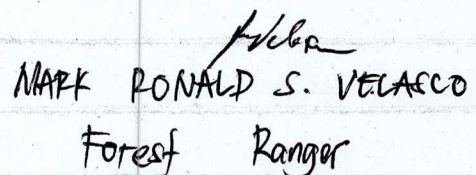 MARK RONALD S. VELASCO
Forest Ranger